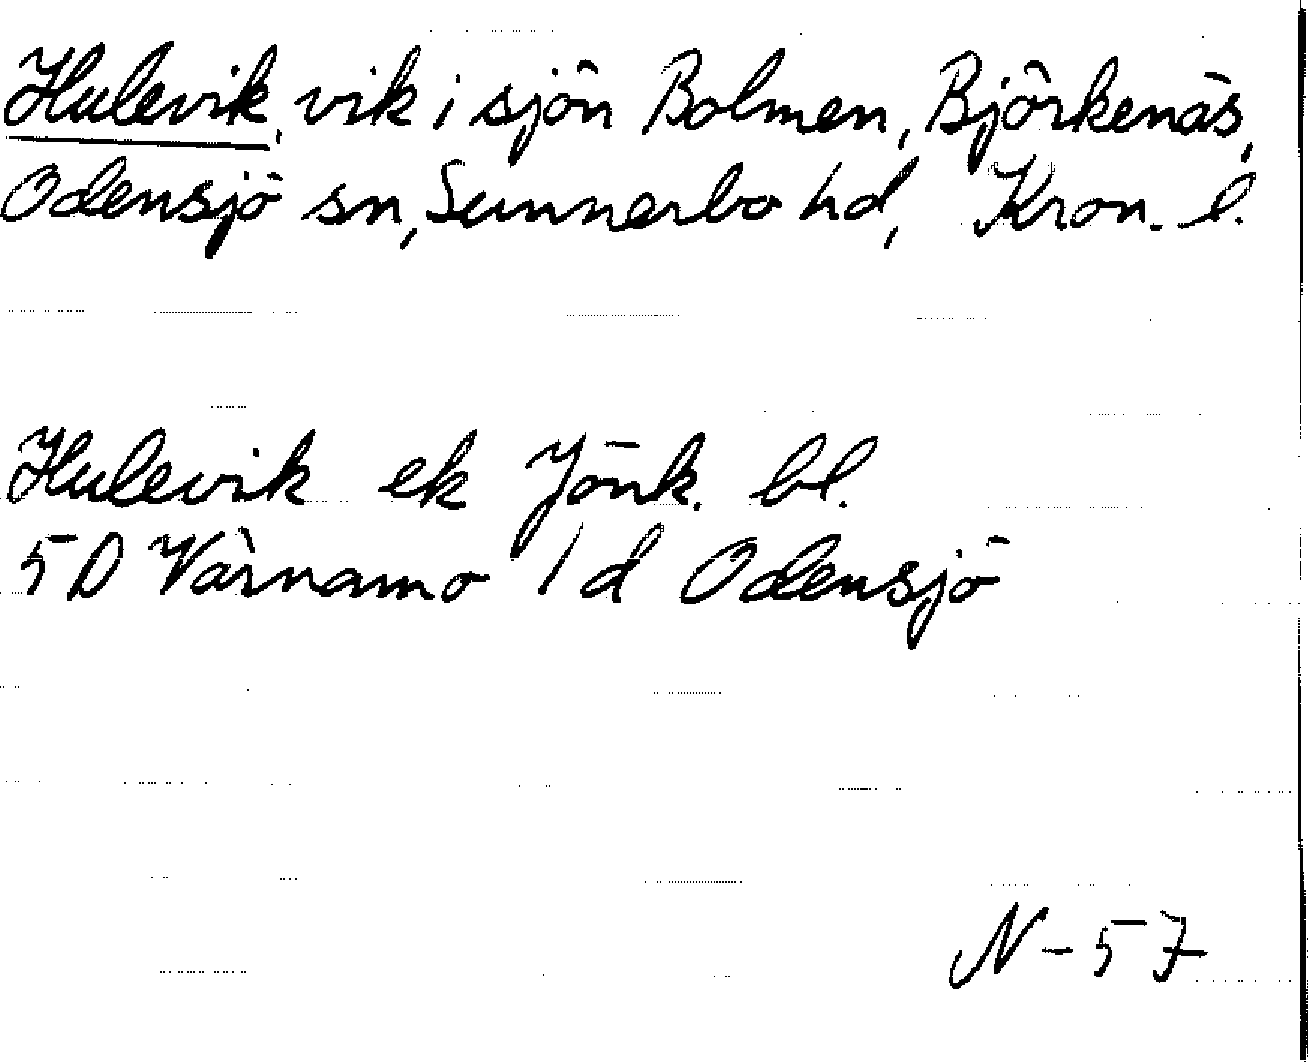 Hulevik, vik i sjön Bolmen, Björkenäs,
Odensjö sn, Sunnerbo hd, Kron. l.
Hulevik ek Jönk. bl.
5D Värnamo 1d Odensjö
N-57